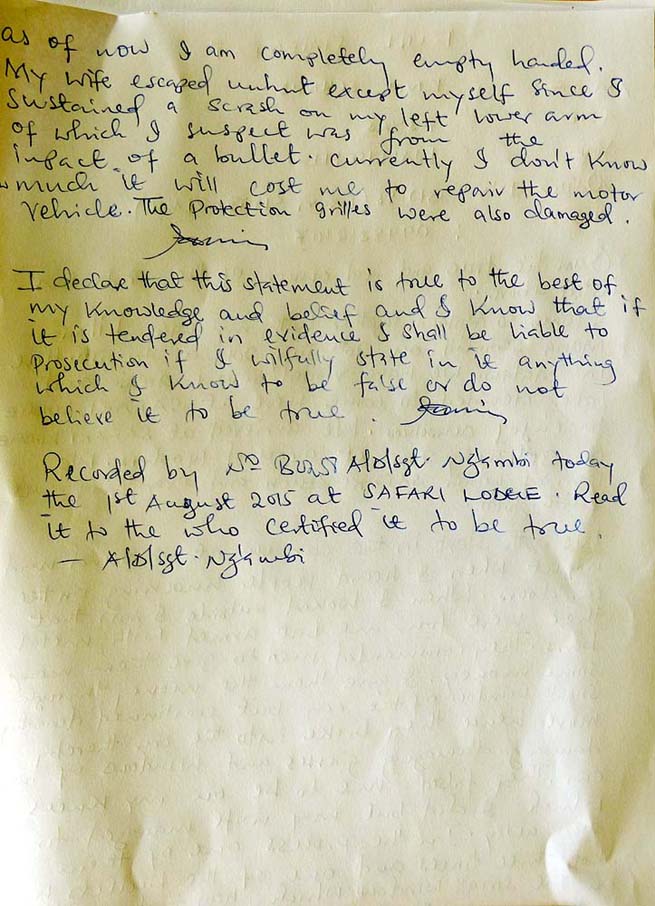 as of now I am completely empty handed.
My wife escaped unhut except myself since I
sustained a scrash on my left lower arm
of which I suspect was from the
inpact of a bullet. currently I don't know
much it will cost me to repair the motor
vehicle. The Protection grilles were also damaged.
I declare that this statement is true to the best of
my knowledge and belief and I know that if
it is tendered in evidence I shall be liable to
Prosecution if I wilfully state in it anything
which I know to be false or do not
believe it to be true.
Recorded by A/D/Sgt. Ng'ambi today
the 1st August 2015 at SAFARI LODGE. Read
it to the who certified it to be true.
— A/D/sgt. Ng'ambi